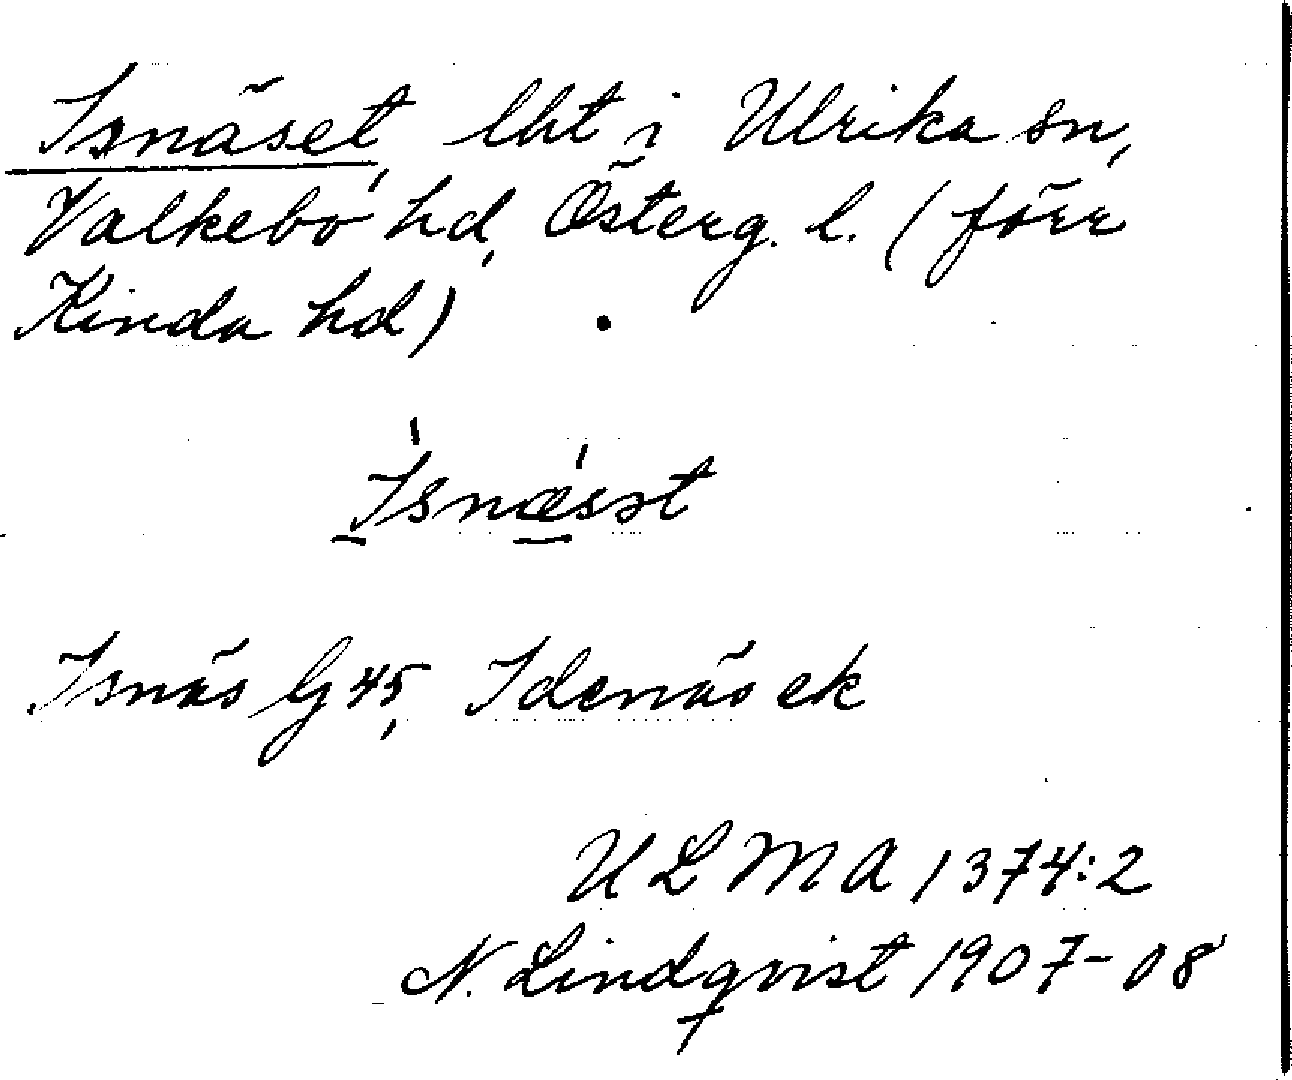 Isnäset, lht i Ulrika sn,
Valkebo hd, Österg. l. (förr
Kinda hd)
Ísnǽsət
Isnäs G 45, Idenäs ek
ULMA 1374:2
N. Lindqvist 1907-08